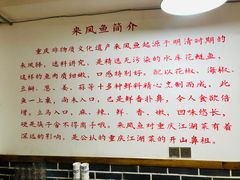 来凤鱼简介
重庆非物质文化遗产来凤鱼起源于明清时期的
来凤驿,选料讲究,是精选无污染的水库花鲢鱼,
这样的鱼肉质细嫩,口感特别好,配以花椒、海椒、
豆瓣、葱、姜、蒜等十多种鲜料精心烹制而成,此
鱼一上桌,尚未入口,已是鲜香扑鼻,令人食欲倍
增,立马入口,麻、辣、鲜、香、嫩,回味悠长,
硬是筷子舍不得离手哦。来凤鱼对重庆江湖菜有着
深远的影响,是公认的重庆江湖菜的开山鼻祖。